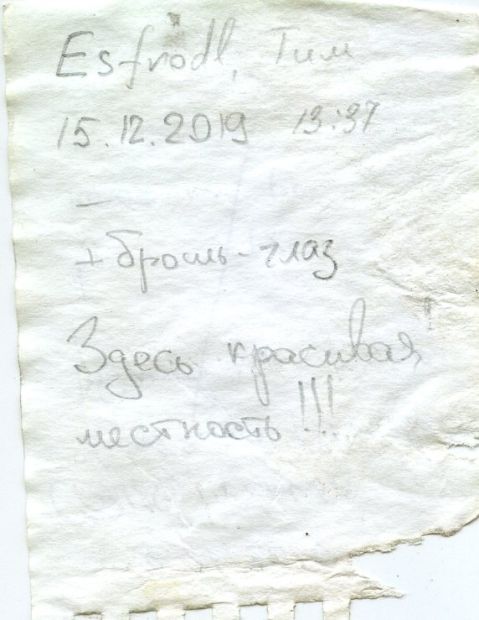 Esfrodl, Тим
15.12.2019 13:37
—
+ брошь-глаз
Здесь красивая
местность!!!